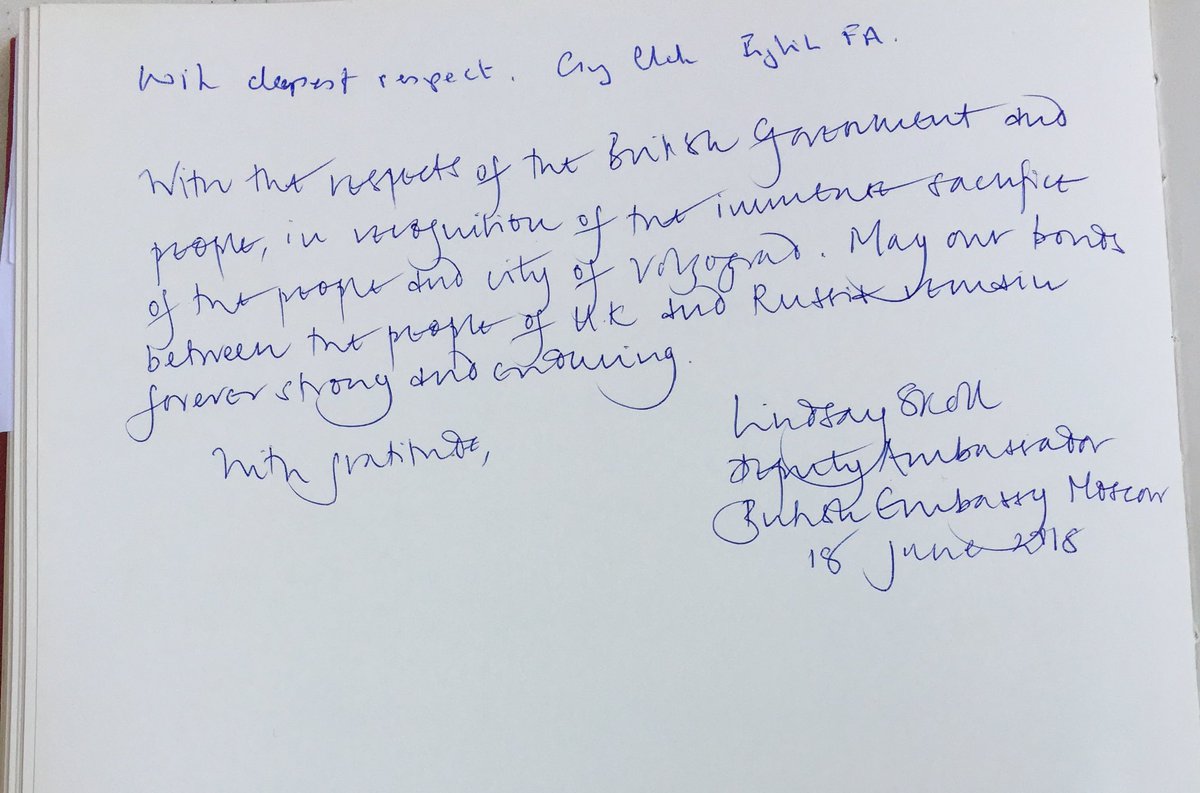 With deepest respect. Greg Clarke English FA.
With the respects of the British Government and
people, in recognition of the immense sacrifice
of the people and city of Volgograd. May our bonds
between the people of UK and Russia remain
forever strong and enduring.
With gratitude,
Lindsay Skoll
Deputy Ambassador
British Embassy Moscow
18 June 2018